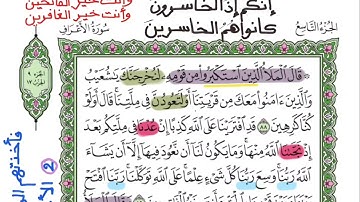 وأنت خير الفاتحين
وأنت خير الغافرين
إنكم إذا لخاسرون
كانوا هم الخاسرين
الجزء التاسع
سورة الأعراف
قَالَ الْمَلَأُ الَّذِينَ اسْتَكْبَرُوا مِن قَوْمِهِ لَنُخْرِجَنَّكَ يَا شُعَيْبُ
وَالَّذِينَ آمَنُوا مَعَكَ مِن قَرْيَتِنَا أَوْ لَتَعُودُنَّ فِي مِلَّتِنَا قَالَ أَوَلَوْ
كُنَّا كَارِهِينَ ٨٨ قَدِ افْتَرَيْنَا عَلَى اللَّهِ كَذِبًا إِنْ عُدْنَا فِي مِلَّتِكُم بَعْدَ
إِذْ نَجَّانَا اللَّهُ مِنْهَا وَمَا يَكُونُ لَنَا أَن نَّعُودَ فِيهَا إِلَّا أَن يَشَاءَ
اللَّهُ رَبُّنَا وَسِعَ رَبُّنَا كُلَّ شَيْءٍ عِلْمًا عَلَى اللَّهِ تَوَكَّلْنَا رَبَّنَا افْتَحْ
فأخذتهم